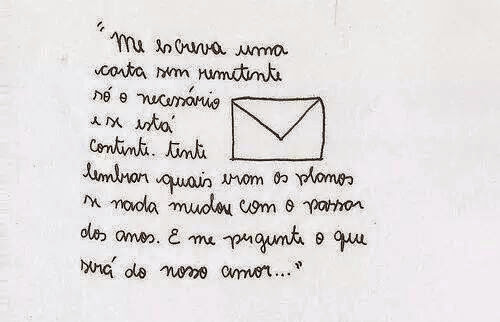 "Me escreva uma
carta sem remetente
só o necessário
e se está
contente. tente
lembrar quais eram os planos
se nada mudou com o passar
dos anos. E me pergunte o que
será do nosso amor..."